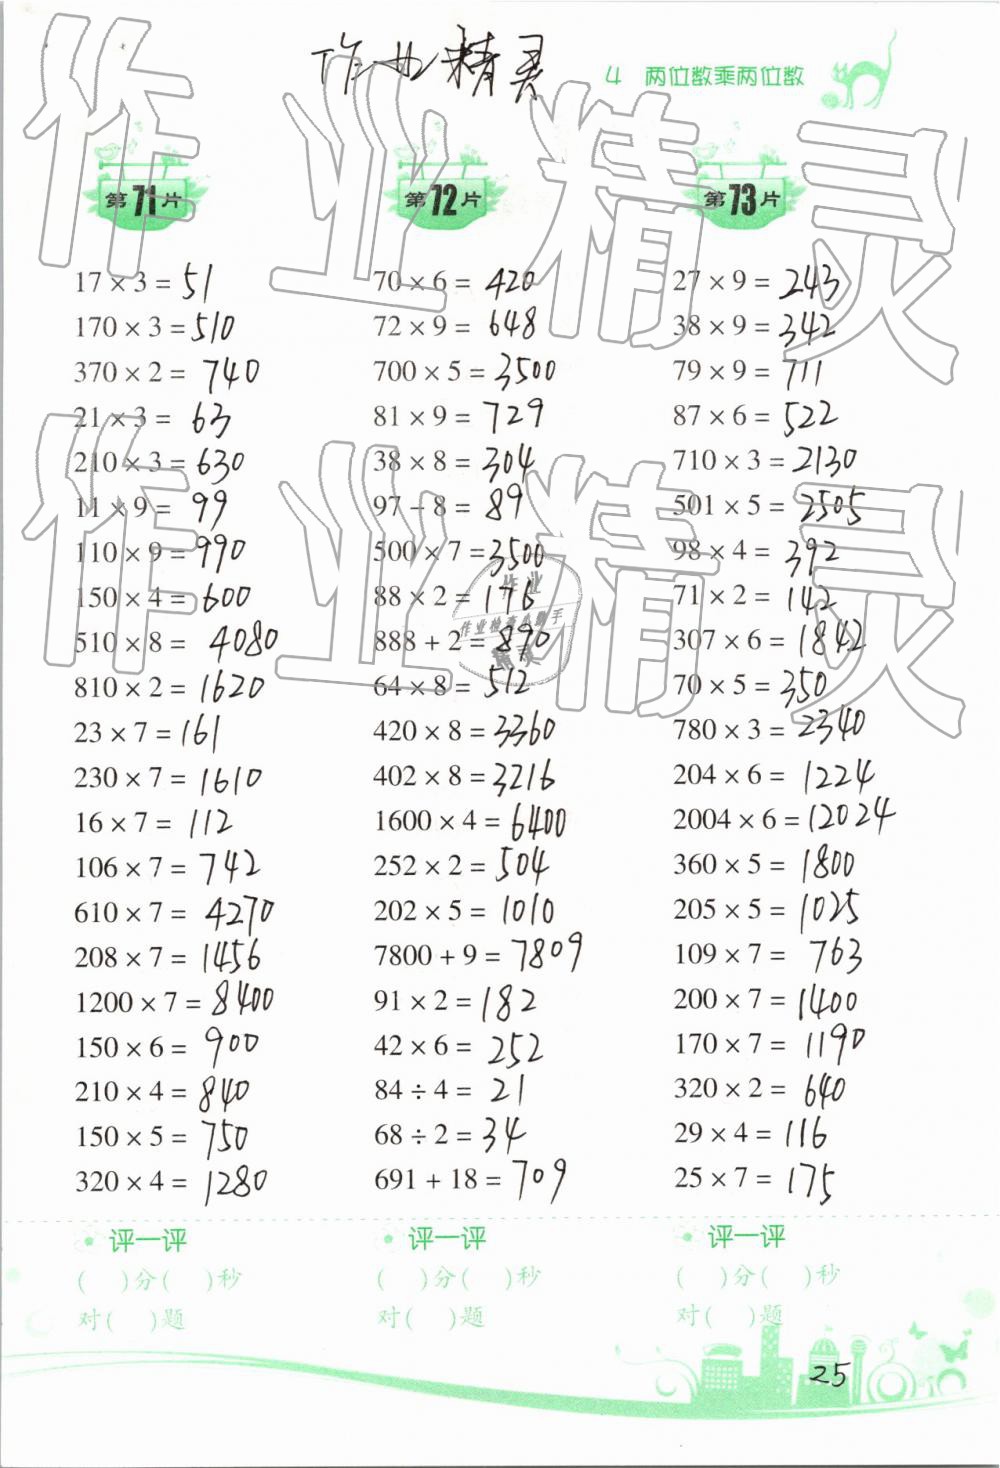 作业精灵
4 两位数乘两位数
第71片
17 × 3 = 51
170 × 3 = 510
370 × 2 = 740
21 × 3 = 63
210 × 3 = 630
11 × 9 = 99
110 × 9 = 990
150 × 4 = 600
510 × 8 = 4080
810 × 2 = 1620
23 × 7 = 161
230 × 7 = 1610
16 × 7 = 112
106 × 7 = 742
610 × 7 = 4270
208 × 7 = 1456
1200 × 7 = 8400
150 × 6 = 900
210 × 4 = 840
150 × 5 = 750
320 × 4 = 1280
评一评
( )分( )秒
对( )题
第72片
70 × 6 = 420
72 × 9 = 648
700 × 5 = 3500
81 × 9 = 729
38 × 8 = 304
97 - 8 = 89
500 × 7 = 3500
88 × 2 = 176
888 + 2 = 890
64 × 8 = 512
420 × 8 = 3360
402 × 8 = 3216
1600 × 4 = 6400
252 × 2 = 504
202 × 5 = 1010
7800 + 9 = 7809
91 × 2 = 182
42 × 6 = 252
84 ÷ 4 = 21
68 ÷ 2 = 34
691 + 18 = 709
评一评
( )分( )秒
对( )题
第73片
27 × 9 = 243
38 × 9 = 342
79 × 9 = 711
87 × 6 = 522
710 × 3 = 2130
501 × 5 = 2505
98 × 4 = 392
71 × 2 = 142
307 × 6 = 1842
70 × 5 = 350
780 × 3 = 2340
204 × 6 = 1224
2004 × 6 = 12024
360 × 5 = 1800
205 × 5 = 1025
109 × 7 = 763
200 × 7 = 1400
170 × 7 = 1190
320 × 2 = 640
29 × 4 = 116
25 × 7 = 175
评一评
( )分( )秒
对( )题
25
作业精灵
作业精灵
作业
作业检查小助手
精灵